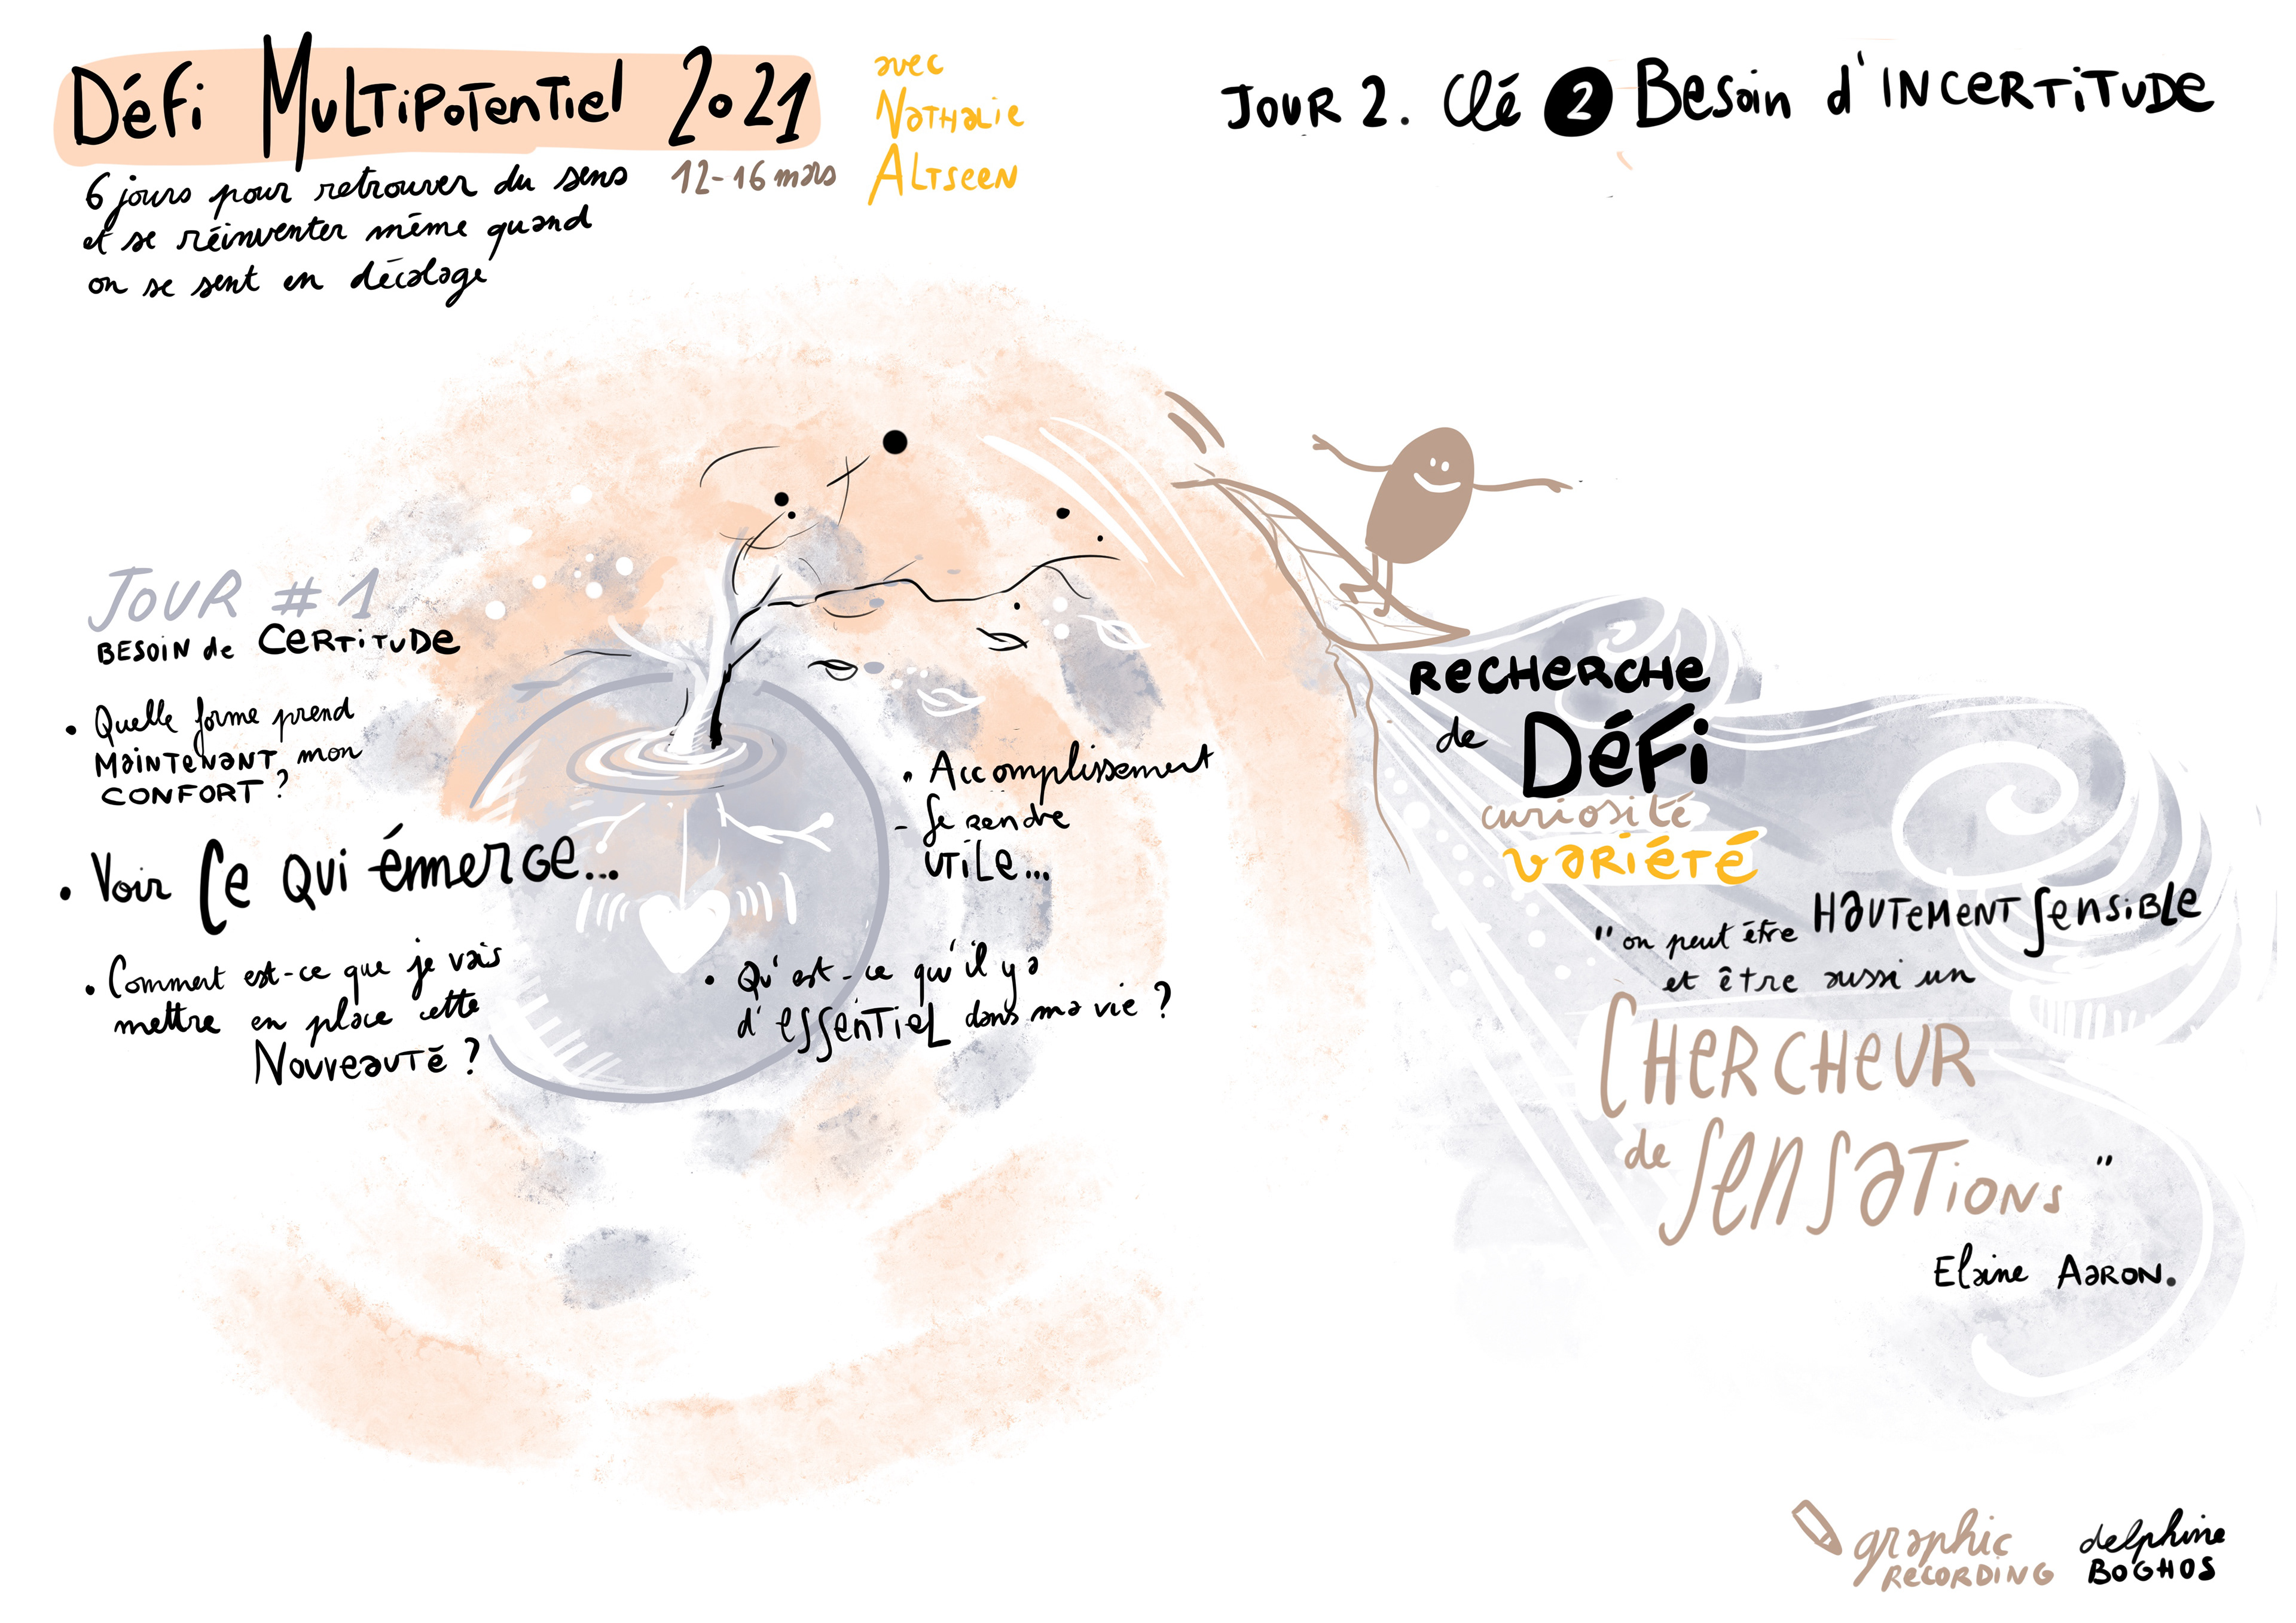 Défi Multipotentiel 2021
avec
Nathalie
Altseen
12-16 mars
6 jours pour retrouver du sens
et se réinventer même quand
on se sent en décalage
JOUR 2. Clé 2 Besoin d'INCERTITUDE
JOUR #1
BESOIN de CERTITUDE
• Quelle forme prend
MAINTENANT mon
CONFORT ?
• Voir Ce qui émerge...
• Comment est-ce que je vais
mettre en place cette
Nouveauté ?
• Accomplissement
- Se rendre
UTILE...
• Qu'est-ce qu'il y a
d'essentiel dans ma vie ?
RECHERCHE
de DéFi
curiosité
variété
"on peut être HAUTEMENT sensible
et être aussi un
CHERCHEUR
de SENSATIONS"
Elaine AaRON.
graphic
RECORDING
delphine
BOGHOS